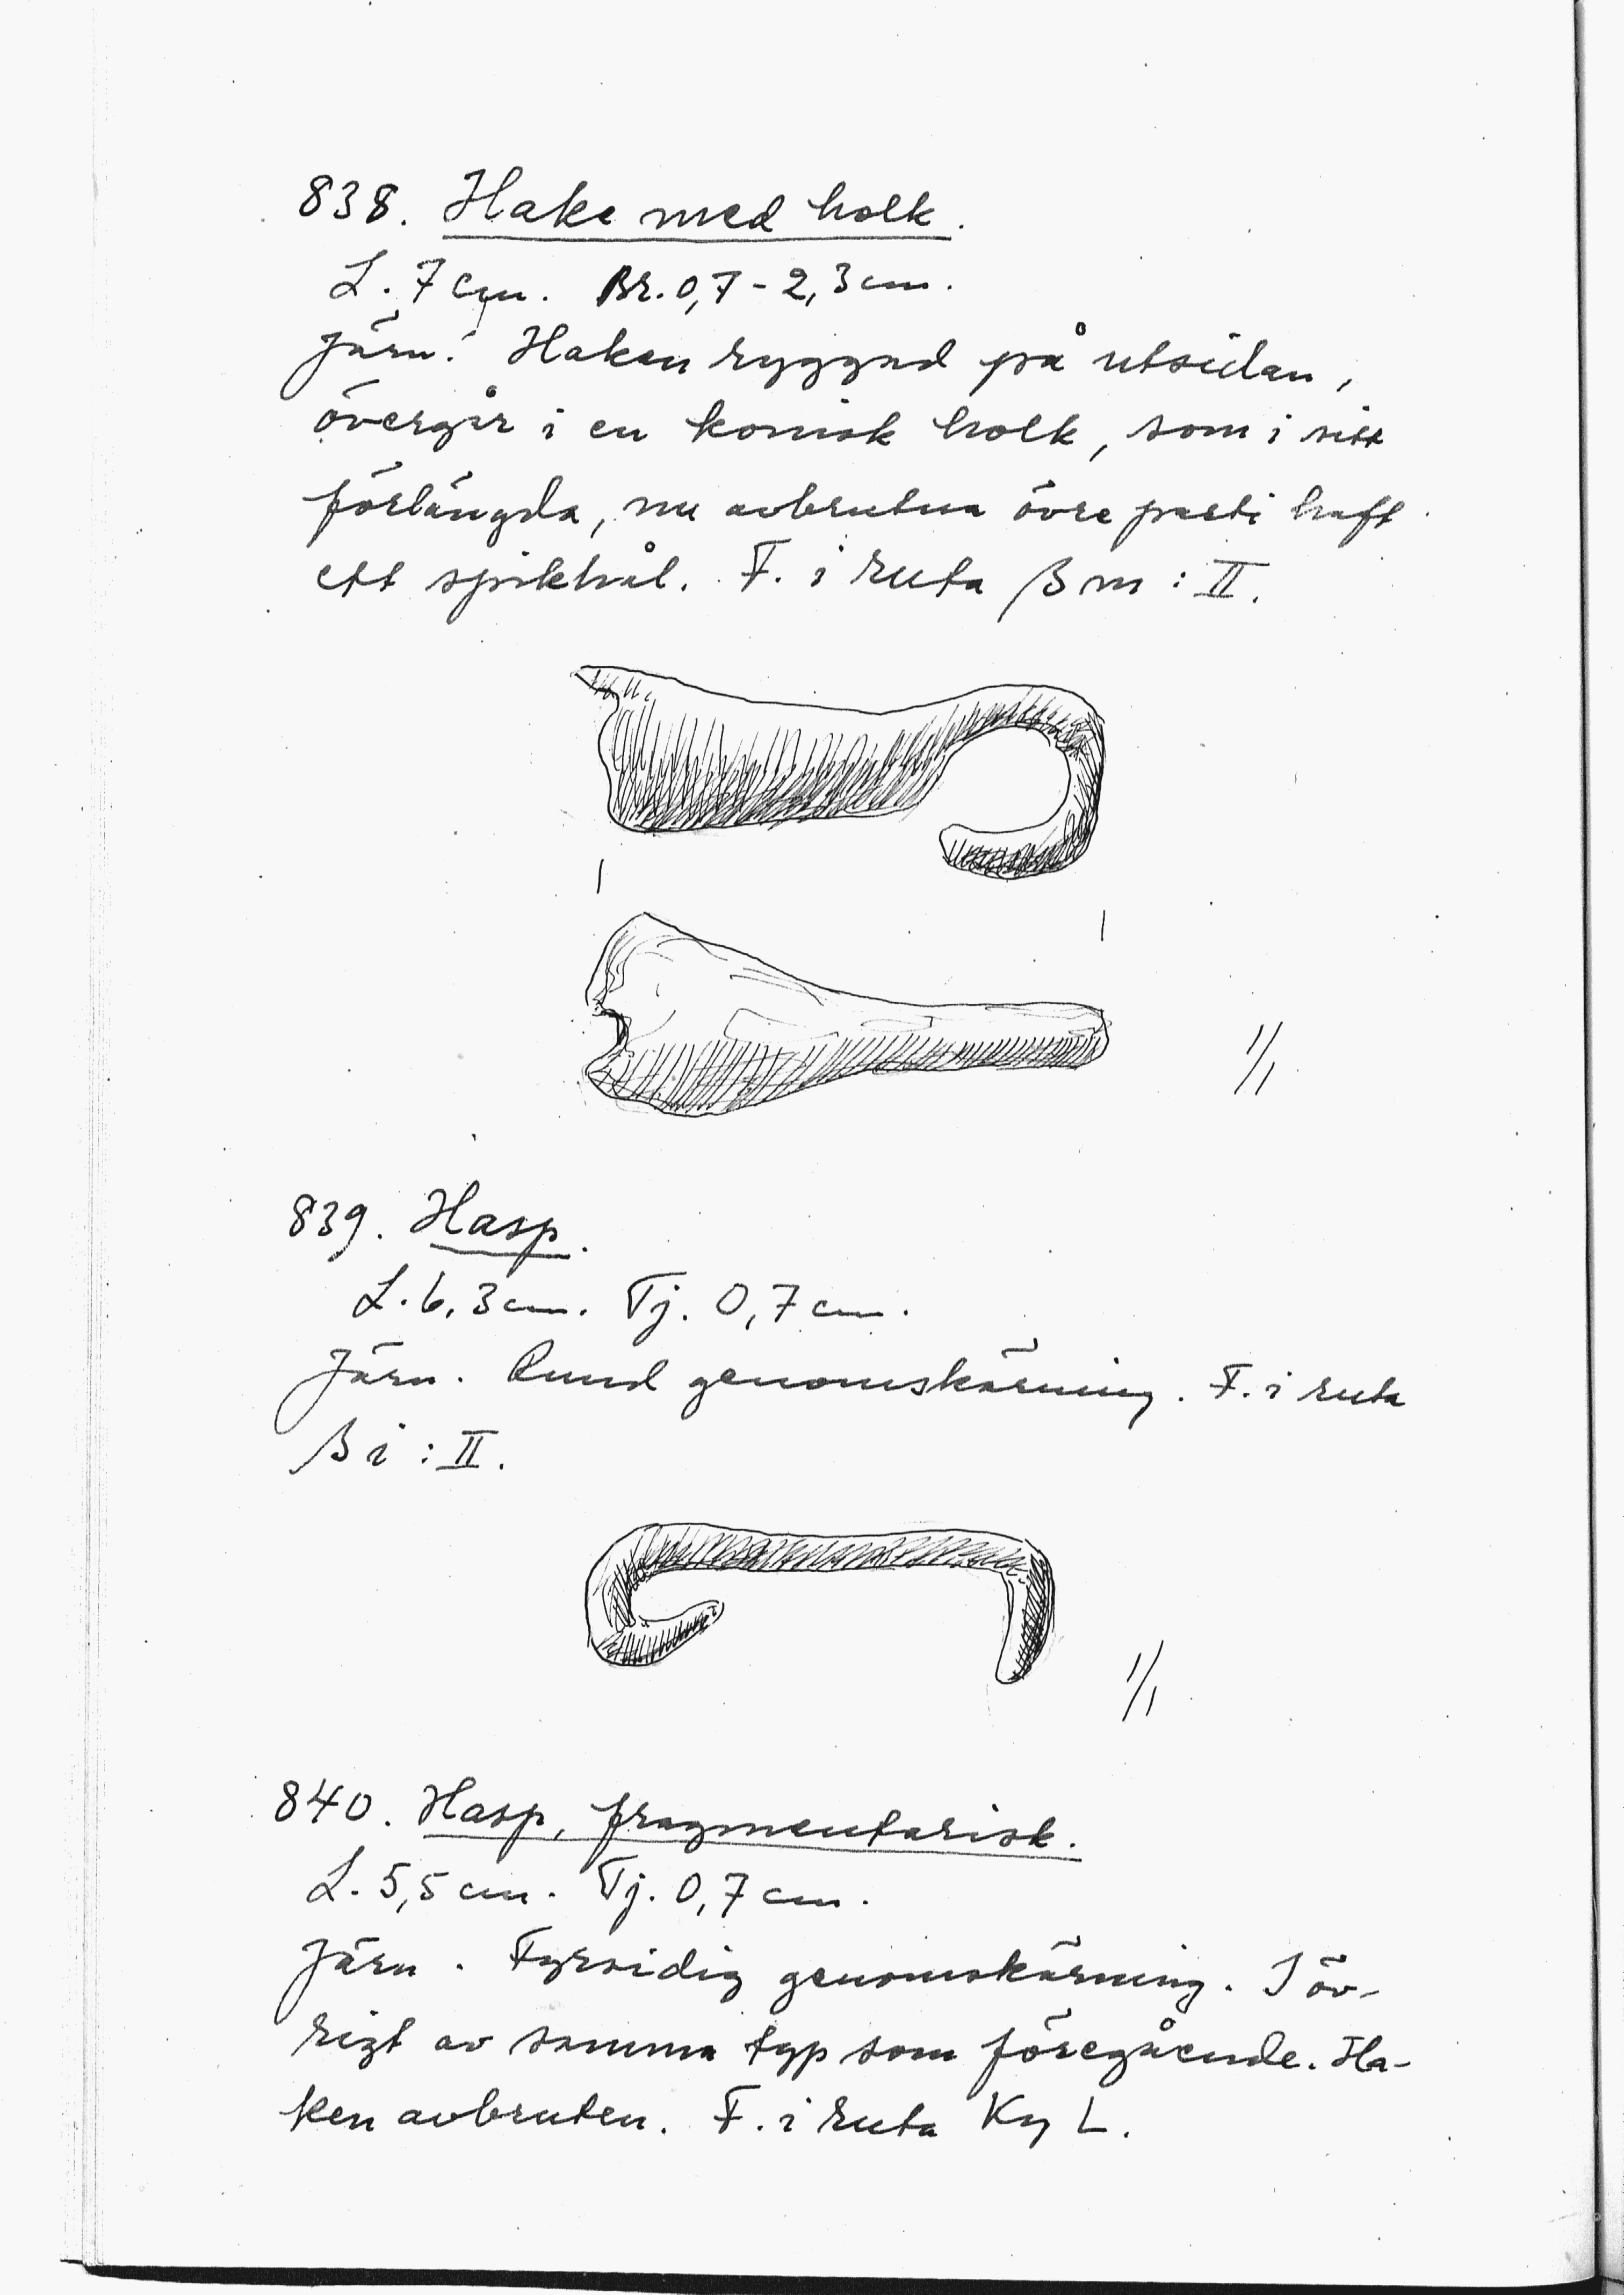 838. Hake med holk.
L. 7 cm. Br. 0,7 - 2,3 cm.
Järn. Haken ryggad på utsidan,
övergår i en konisk holk, som i sitt
förlängda, nu avbrutna övre parti haft
ett spikhål. F. i ruta βm : II.
1/1
839. Hasp.
L. 6,3 cm. Tj. 0,7 cm.
Järn. Rund genomskärning. F. i ruta
βi : II.
1/1
840. Hasp, fragmentarisk.
L. 5,5 cm. Tj. 0,7 cm.
Järn. Fyrsidig genomskärning. I öv-
rigt av samma typ som föregående. Ha-
ken avbruten. F. i ruta Ky L.